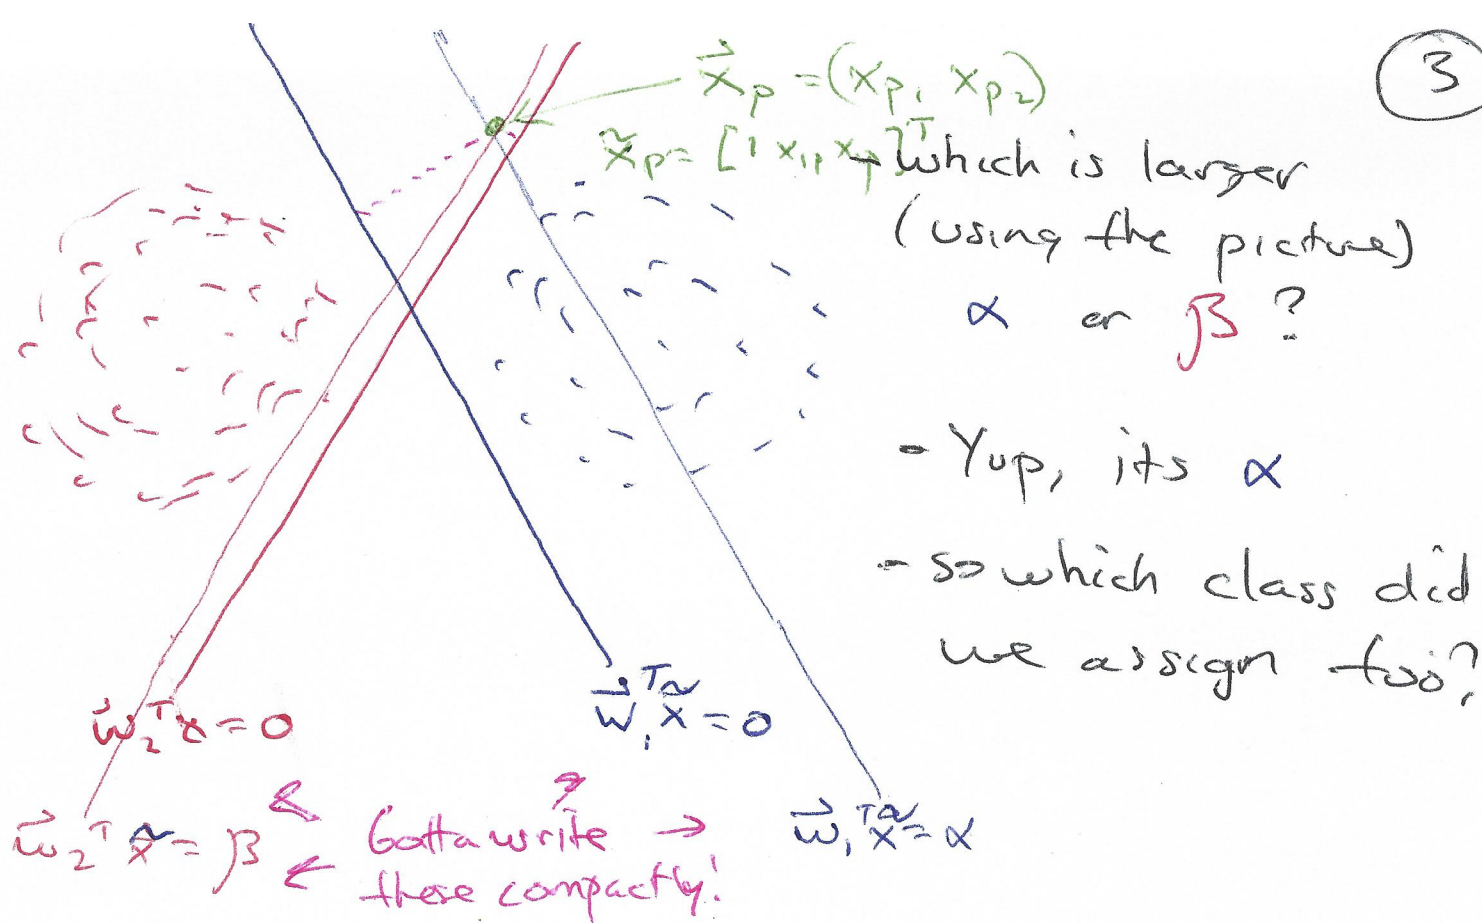 ③
x⃗ₚ = (xₚ₁ xₚ₂)
x̃ₚ = [1 x₁ₚ x
- which is larger
(using the picture)
α or β ?
- Yup, its α
- so which class did
we assign too?
w⃗₂ᵀx = 0
w⃗₁ᵀx̃ = 0
w⃗₂ᵀx̃ = β
Gotta write
these compactly!
w⃗₁ᵀx̃ = α